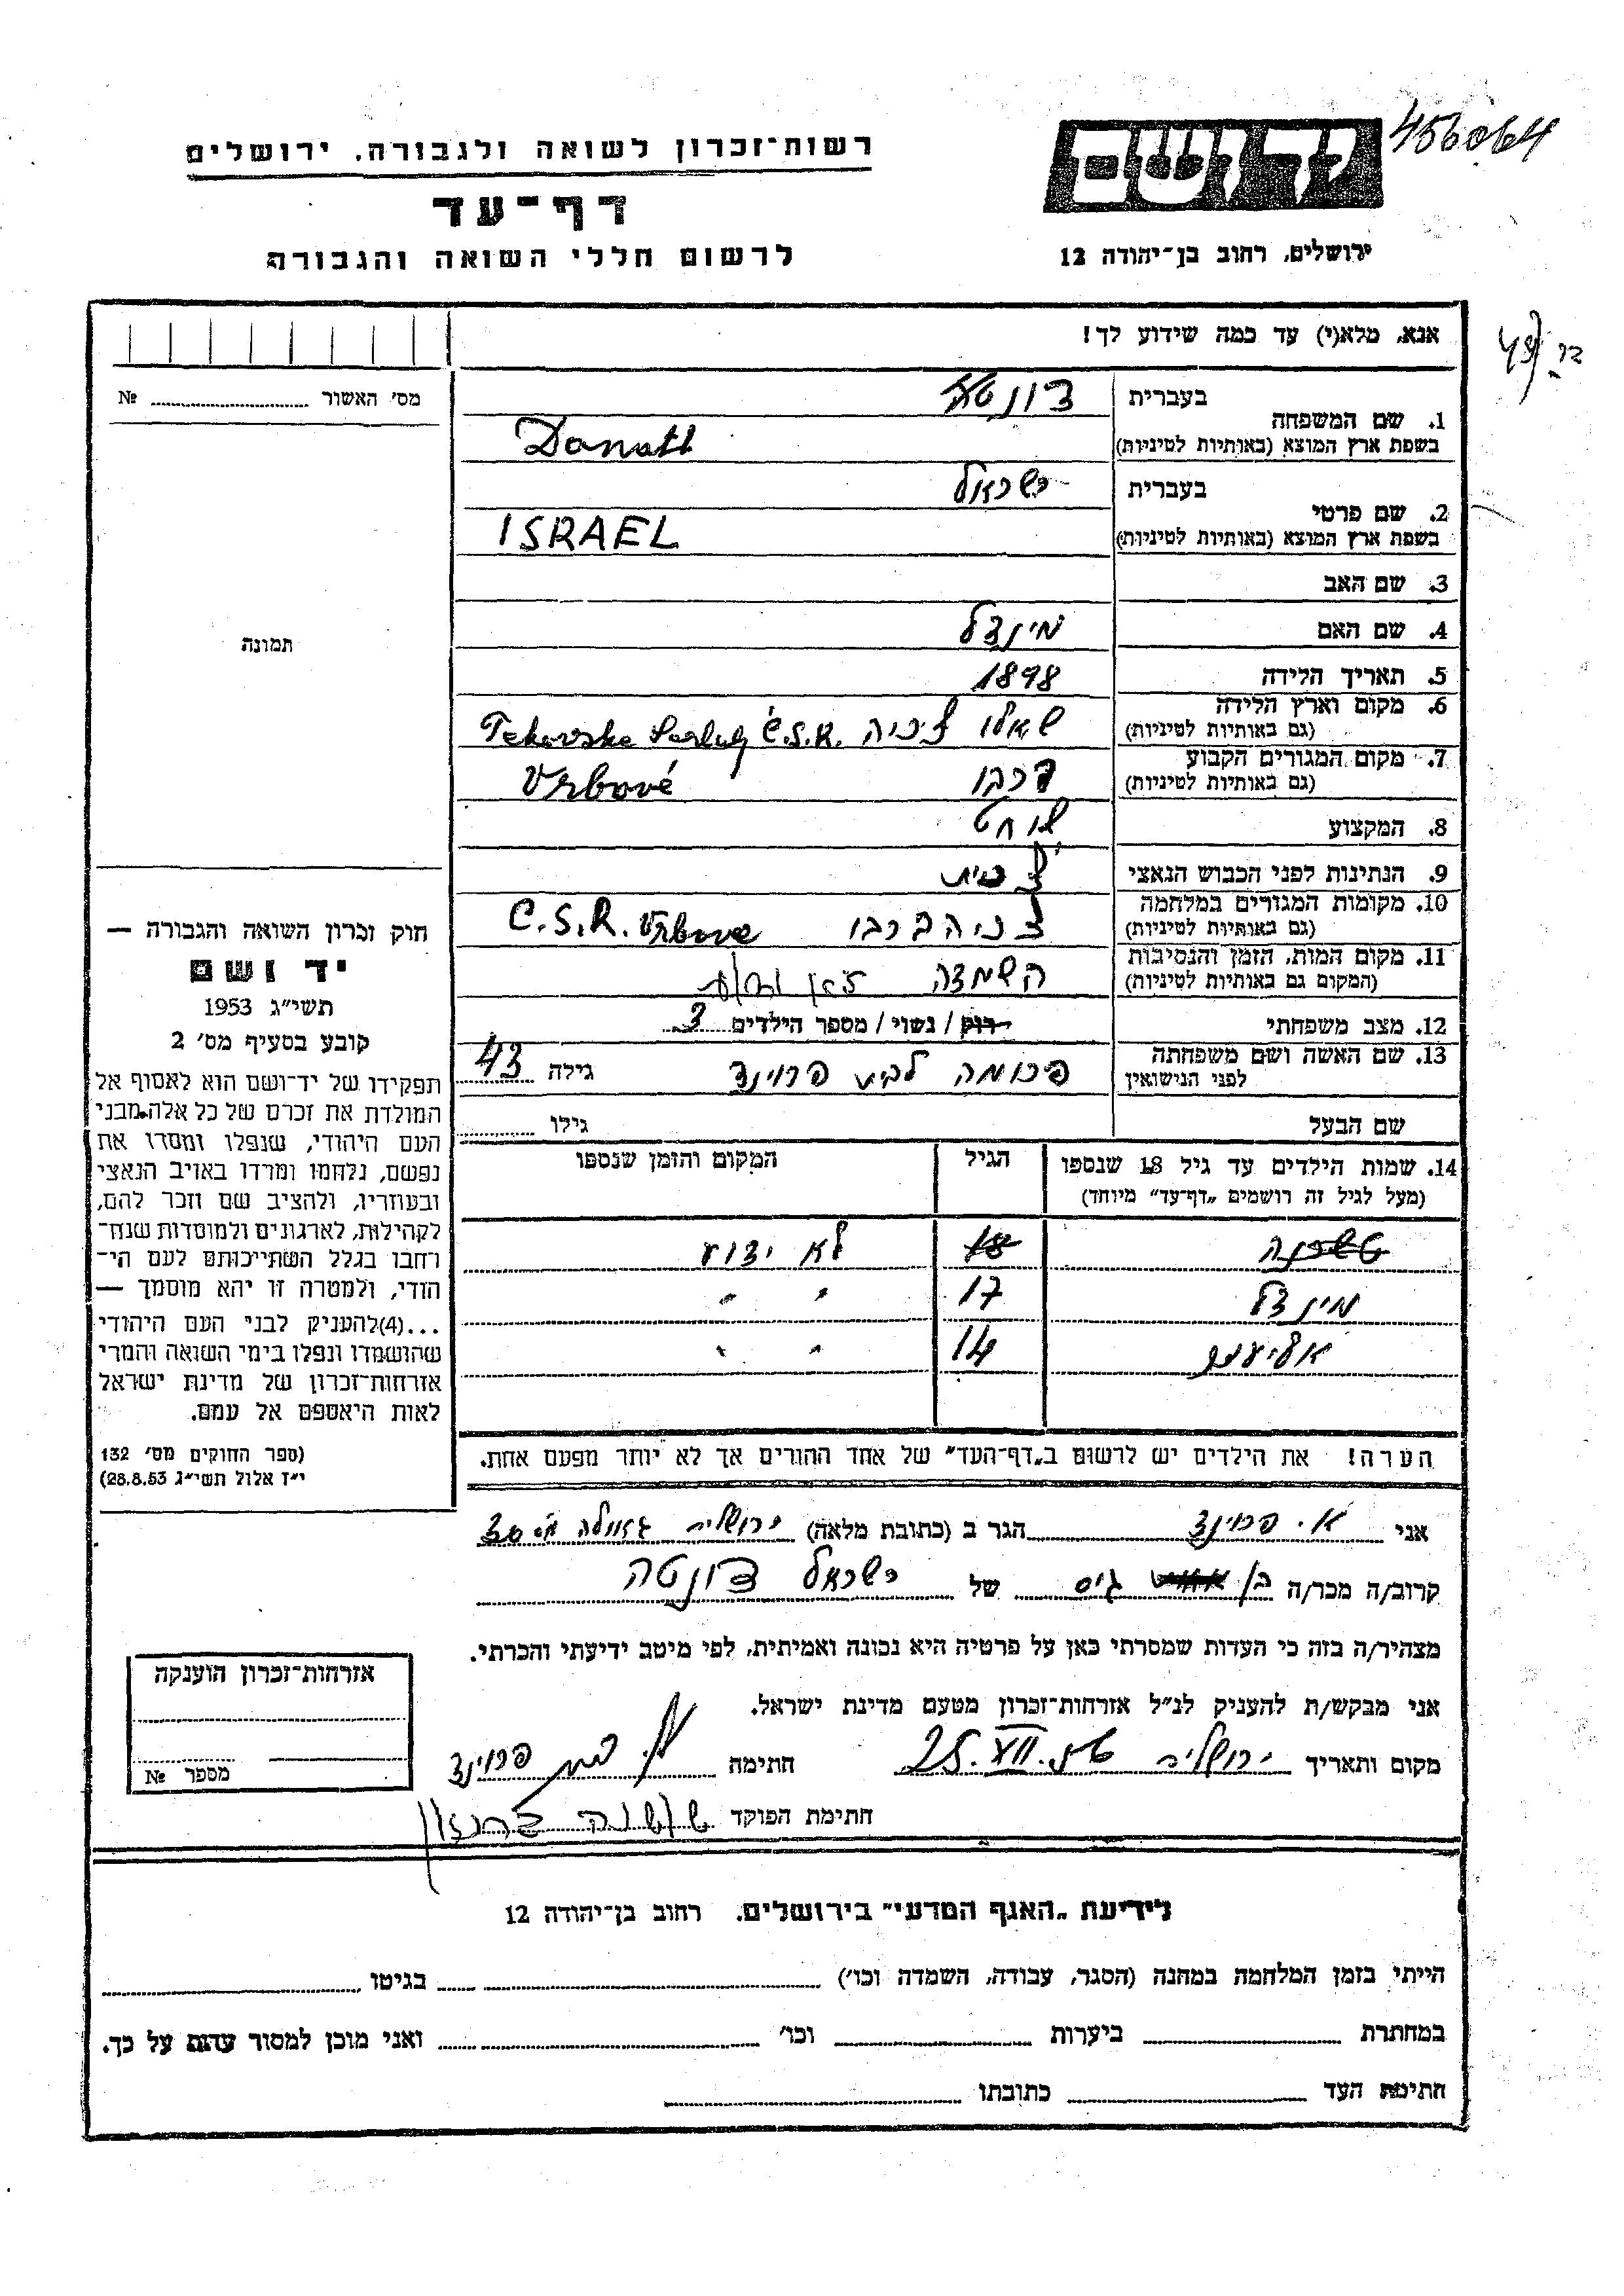 456064
יד ושם
רשות־זכרון לשואה ולגבורה, ירושלים
דף־עד
לרשום חללי השואה והגבורה
ירושלים, רחוב בן־יהודה 12
אנא, מלא(י) עד כמה שידוע לך!
מס׳ האשור № ........
תמונה
1. שם המשפחה
בעברית
בשפת ארץ המוצא (באותיות לטיניות) Donath
2. שם פרטי
בעברית ישראל
בשפת ארץ המוצא (באותיות לטיניות) ISRAEL
3. שם האב
4. שם האם מינדל
5. תאריך הלידה 1898
6. מקום וארץ הלידה
(גם באותיות לטיניות) Č.S.R. Tekovske
7. מקום המגורים הקבוע
(גם באותיות לטיניות) ורבו Vrbové
8. המקצוע שוחט
9. הנתינות לפני הכבוש הנאצי
10. מקומות המגורים במלחמה
(גם באותיות לטיניות) C.S.R. Vrbove
11. מקום המות, הזמן והנסיבות
(המקום גם באותיות לטיניות) השמדה
12. מצב משפחתי רוק / נשוי / מספר הילדים 3
13. שם האשה ושם משפחתה
לפני הנישואין פרומה לבית פרוינד גילה 43
שם הבעל גילו ........
14. שמות הילדים עד גיל 18 שנספו
(מעל לגיל זה רושמים „דף־עד״ מיוחד)
הגיל
המקום והזמן שנספו
18 לא ידוע
מינדל 17 " "
14 " "
הערה! את הילדים יש לרשום ב„דף־העד״ של אחד ההורים אך לא יותר מפעם אחת.
חוק זכרון השואה והגבורה —
יד ושם
תשי״ג 1953
קובע בסעיף מס׳ 2
תפקידו של יד־ושם הוא לאסוף אל
המולדת את זכרם של כל אלה מבני
העם היהודי, שנפלו ומסרו את
נפשם, נלחמו ומרדו באויב הנאצי
ובעוזריו, ולהציב שם וזכר להם,
לקהילות, לארגונים ולמוסדות שנח־
רחבו בגלל השתייכותם לעם הי־
הודי, ולמטרה זו יהא מוסמך —
...(4)להעניק לבני העם היהודי
שהושמדו ונפלו בימי השואה והמרי
אזרחות־זכרון של מדינת ישראל
לאות היאספם אל עמם.
(ספר החוקים מס׳ 132
י״ז אלול תשי״ג 28.8.53)
אני א. פרוינד הגר ב (כתובת מלאה) ירושלים גאולה
קרוב/ה מכר/ה בן גיס של ישראל דונטה
מצהיר/ה בזה כי העדות שמסרתי כאן על פרטיה היא נכונה ואמיתית, לפי מיטב ידיעתי והכרתי.
אני מבקש/ת להעניק לנ״ל אזרחות־זכרון מטעם מדינת ישראל.
מקום ותאריך ירושלים 25.VII. חתימה פרוינד
חתימת הפוקד שושנה
אזרחות־זכרון הוענקה
מספר №
לידיעת „האגף המדעי״ בירושלים, רחוב בן־יהודה 12
הייתי בזמן המלחמה במחנה (הסגר, עבודה, השמדה וכו׳) ........ בגיטו ........
במחתרת ........ ביערות ........ וכו׳ ........ ואני מוכן למסור עדות על כך.
חתימת העד ........ כתובתו ........